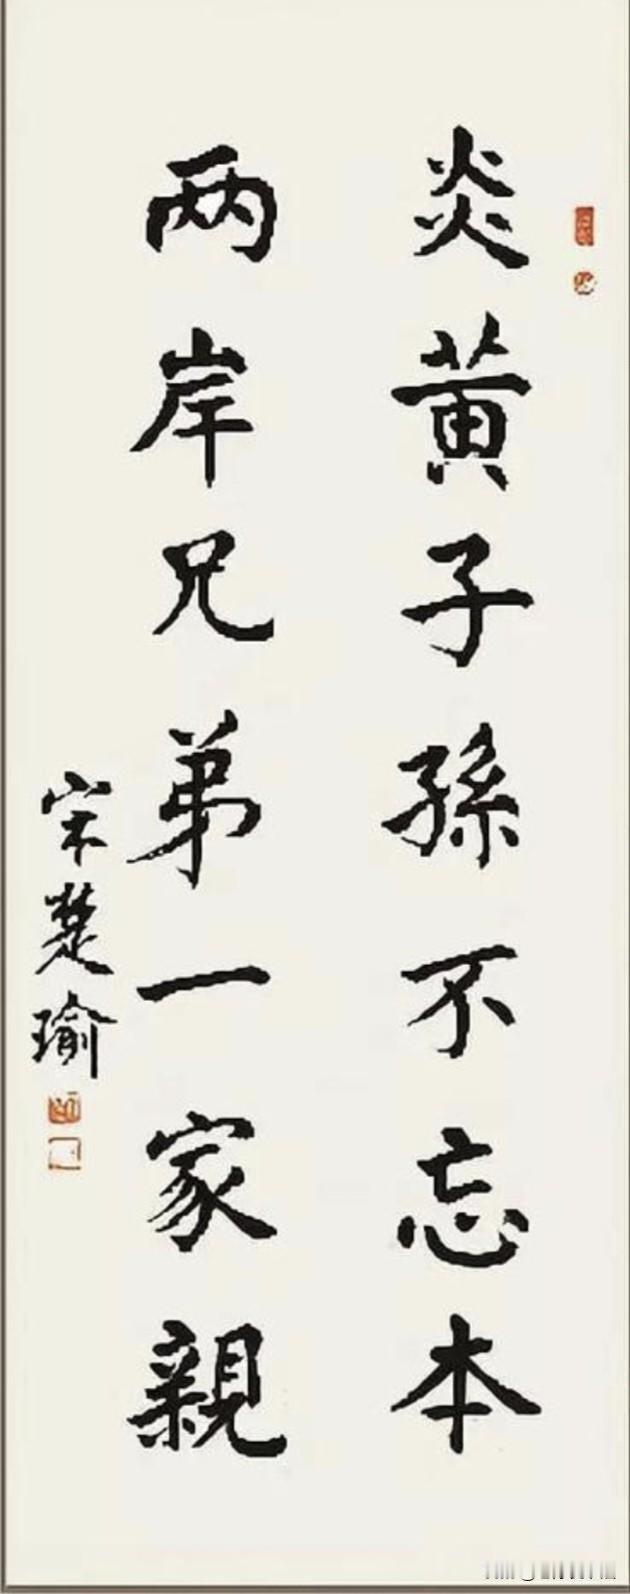 炎黄子孫不忘本
两岸兄弟一家親
宋楚瑜